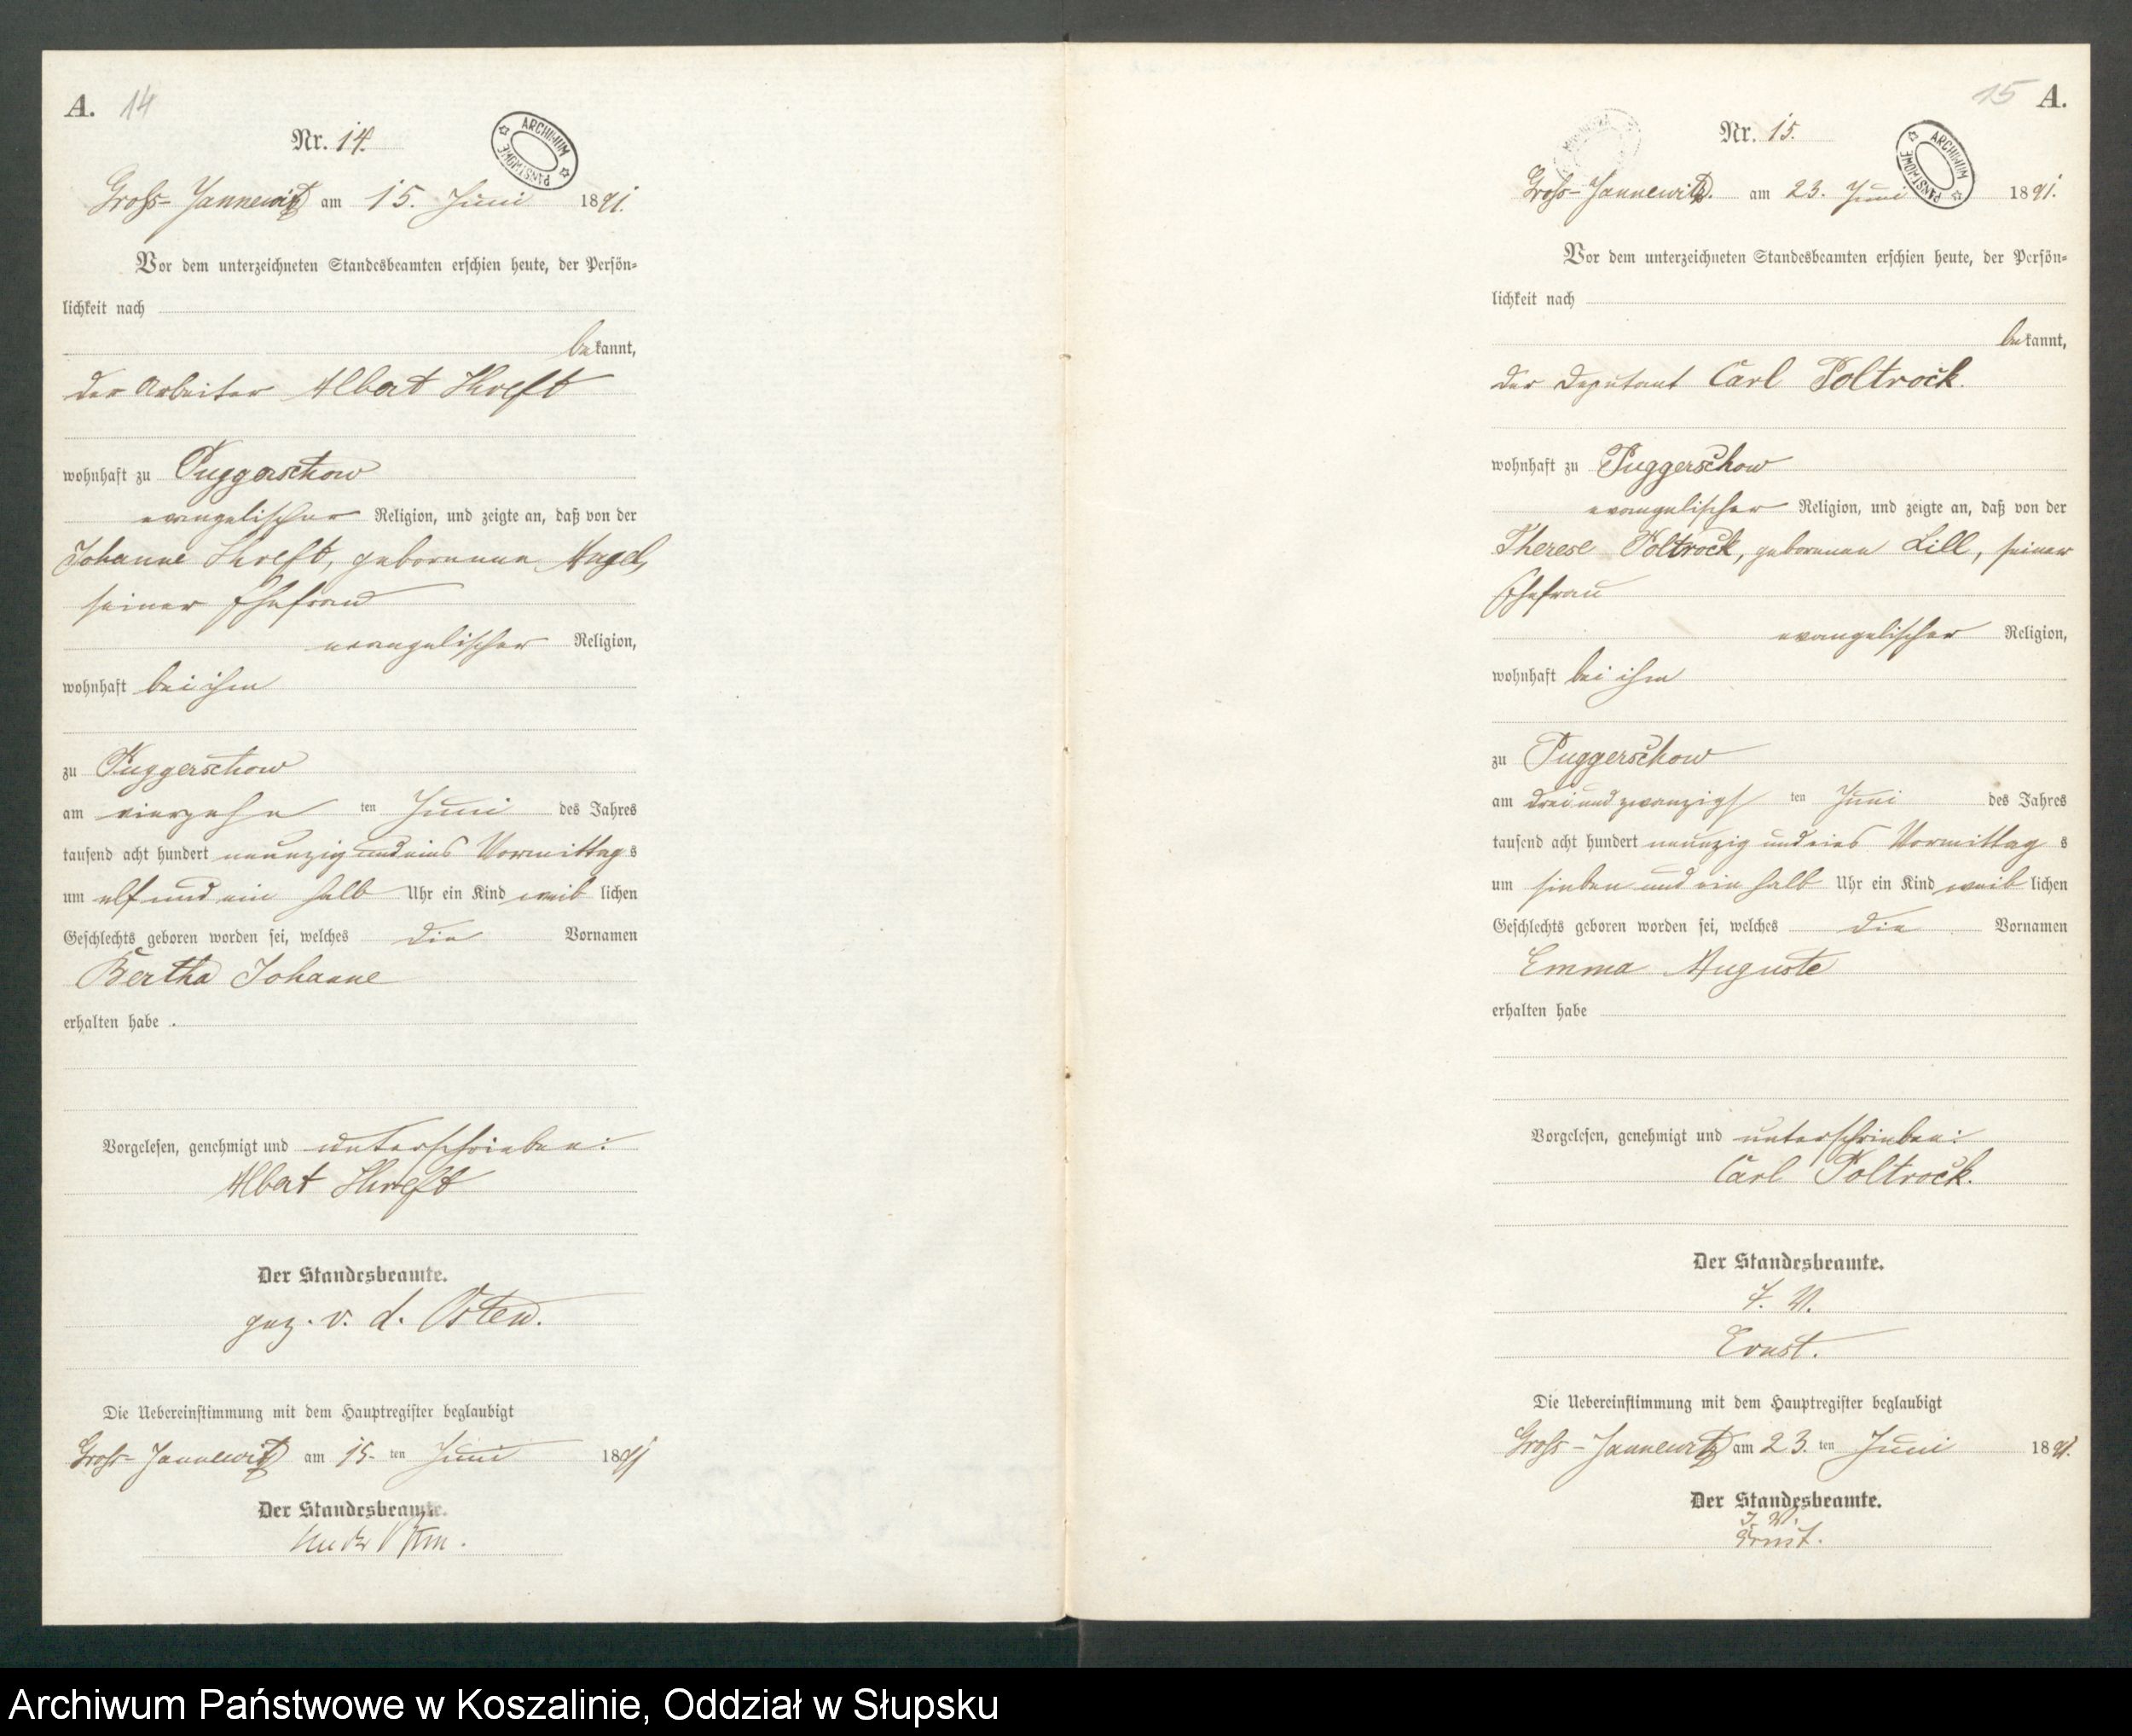 A. 14
Nr. 14.
ARCHIWUM PAŃSTWOWE
Gross-Jannewitz am 15. Juni 1891.
Vor dem unterzeichneten Standesbeamten erschien heute, der Persön-
lichkeit nach
bekannt,
der Arbeiter Albert
wohnhaft zu Puggerschow
evangelischer Religion, und zeigte an, daß von der
Johanne geborenen
seiner Ehefrau
evangelischer Religion,
wohnhaft bei ihm
zu Puggerschow
am vierzehn ten Juni des Jahres
tausend acht hundert neunzig und eins Vormittags
um elf und ein halb Uhr ein Kind weiblichen
Geschlechts geboren worden sei, welches die Vornamen
Bertha Johanne
erhalten habe .
Vorgelesen, genehmigt und unterschrieben:
Albert
Der Standesbeamte.
gez. v. d. Osten.
Die Uebereinstimmung mit dem Hauptregister beglaubigt
Gross-Jannewitz am 15. ten Juni 1891
Der Standesbeamte.
15 A.
Nr. 15.
ARCHIWUM PAŃSTWOWE
Gross-Jannewitz. am 23. Juni 1891.
Vor dem unterzeichneten Standesbeamten erschien heute, der Persön-
lichkeit nach
bekannt,
der Deputant Carl Poltrock.
wohnhaft zu Puggerschow
evangelischer Religion, und zeigte an, daß von der
Therese Poltrock, geborenen Lill, seiner
Ehefrau
evangelischer Religion,
wohnhaft bei ihm
zu Puggerschow
am drei und zwanzigsten Juni des Jahres
tausend acht hundert neunzig und eins Vormittags
um sieben und ein halb Uhr ein Kind weiblichen
Geschlechts geboren worden sei, welches die Vornamen
Emma Auguste
erhalten habe
Vorgelesen, genehmigt und unterschrieben:
Carl Poltrock.
Der Standesbeamte.
J. V.
Ernst.
Die Uebereinstimmung mit dem Hauptregister beglaubigt
Gross-Jannewitz am 23. ten Juni 1891.
Der Standesbeamte.
J. V.
Ernst.
Archiwum Państwowe w Koszalinie, Oddział w Słupsku